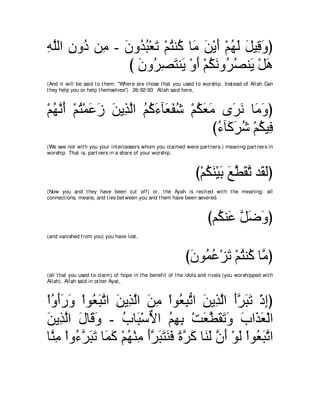 (وَقِيلَ لَهُمْ أَيْنَ مَا كُنتُمْ تَعْبُدُونَ - مِن دُونِ اللَّهِ
هَلْ يَنصُرُونَكُمْ أَوْ يَنتَصِرُونَ )
(And it will be said to them: "Where are those that you used to worship. Instead of Allah Can
they help you or help themselves'') 26:92-93 Allah said here,
(وَمَا نَرَى مَعَكُمْ شُفَعَآءَكُمُ الَّذِينَ زَعَمْتُمْ أَنَّهُمْ
فِيكُمْ شُرَكَآءُ)
(We see not with you your intercessors whom you claimed were partners.) meaning partners in
worship. That is, partners in a share of your worship.
(لَقَد تَّقَطَّعَ بَيْنَكُمْ)
(Now you and they have been cut off) or, the Ayah is recited with the meaning: all
connections, means, and ties between you and them have been severed.
(وَضَلَّ عَنكُم)
(and vanished from you) you have lost,
(مَّا كُنتُمْ تَزْعُمُونَ)
(all that you used to claim) of hope in the benefit of the idols and rivals (you worshipped with
Allah). Allah said in other Ayat,
(إِذْ تَبَرَّأَ الَّذِينَ اتُّبِعُواْ مِنَ الَّذِينَ اتَّبَعُواْ وَرَأَوُاْ
الْعَذَابَ وَتَقَطَّعَتْ بِهِمُ الأَسْبَابُ - وَقَالَ الَّذِينَ
اتَّبَعُواْ لَوْ أَنَّ لَنَا كَرَّةً فَنَتَبَرَّأَ مِنْهُمْ كَمَا تَبَرَّءُواْ مِنَّا